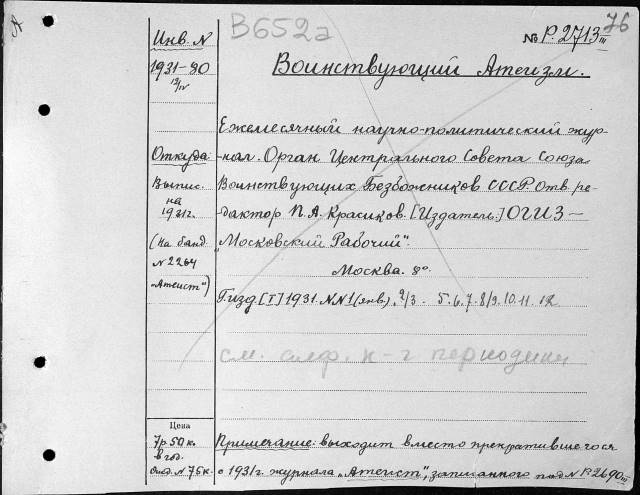 76
Инв. N
В652а
№ Р. 2713 III
1931-80
13/IV
Воинствующий Атеизм.
Ежемесячный научно-политический жур-
Откуда:
-нал. Орган Центрального Совета Союза
Выпис.
Воинствующих Безбожников СССР. Отв. ре-
на
1931 г.
дактор П. А. Красиков. [Издатель:] ОГИЗ —
(на банд.
"Московский Рабочий".
N 2264
Москва. 8о.
"Атеист")
Г. изд. [I] 1931. N N 1 (янв.), 2/3. 5. 6. 7. 8/9. 10. 11. 12
см. периодики
Цена
7 р 50 к.
Примечание: выходит вместо прекратившегося
в год.
с 1931 г. журнала „Атеист", записанного под N Р. 2690 III
N 75 к.